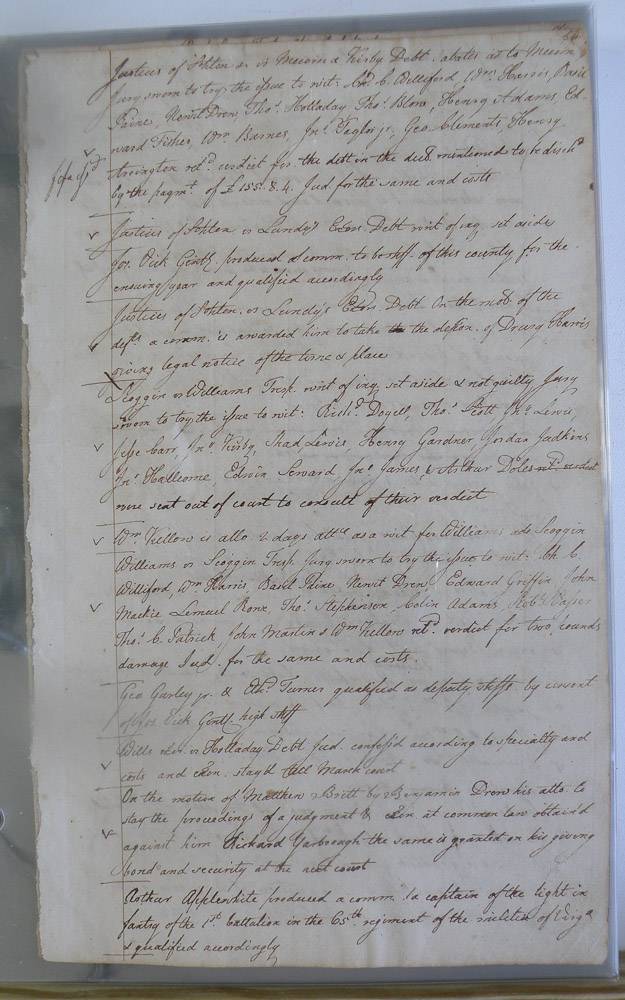 56
Justices of Sohton &c vs Meacom & Kirby Debt. abates as to Meacom
Jury sworn to try the issue to wit: Ch. C. Williford, Wm. Harris, Basil
Paine, Newit Drew, Thos. Holladay Thos. Blow, Henry Adams, Ed-
ward Fisher, Wm. Barnes, Jno. Taylor jr, Geo Clements, Henry
Arrington retd. verdict for the debt in the decl. mentioned to be disch.d
by the paymt. of £155.8.4. Jud for the same and costs
Justices of Sohton vs Lundy's Exors. Debt writ of inq. set aside
Jos. Vick Gentl. produced a comm. to be shff. of this county for the
ensuing year and qualified accordingly
Justices of Sohton. vs Lundy's Exors. Debt. On the mo. of the
defts. a comm. is awarded him to take the depon. of Drury Harris
giving legal notice of the time & place
Scoggin vs Williams Tresp. writ of inq. set aside & not guilty Jury
sworn to try the issue to wit: Richd. Doyell, Thos. Scott Jno. Lewis,
Jesse Carr, Jno. Kirby, Shad. Lewis, Henry Gardner Jordan Judkins,
Jno. Hallcome, Edwin Seward Jno. James, & Arthur Doles retd. verdict
were sent out of court to consult of their verdict
Wm. Vellow is allo. 2 days attce. as a wit for Williams ads Scoggin
Williams vs Scoggin Tresp. Jury sworn to try the issue to wit: Ch. C.
Williford, Wm. Harris, Basil Paine Newit Drew, Edward Griffin John
Mackie Lemuel Rone, Thos. Stephenson Colin Adams, Robt. Vasser
Thos. C. Patrick, John Martin & Wm. Vellow retd. verdict for two pounds
damage Jud. for the same and costs.
Geo Gurley jr. & Ethd. Turner qualified as deputy shffs by consent
of Jos. Vick Gentl. high shff
Wills exor. vs Holladay Debt Jud. confess'd according to specialty and
costs and exon. stay'd till March court
On the motion of Matthew Britt by Benjamin Drew his atto. to
stay the proceedings of a judgment & exon at common law obtain'd
against him Richard Yarbrough the same is granted on his giving
bond and security at the next court
Arthur Applewhite produced a comm. to captain of the light in
fantry of the 1st. battalion in the 65th. regiment of the militia of Virga
& qualified accordingly